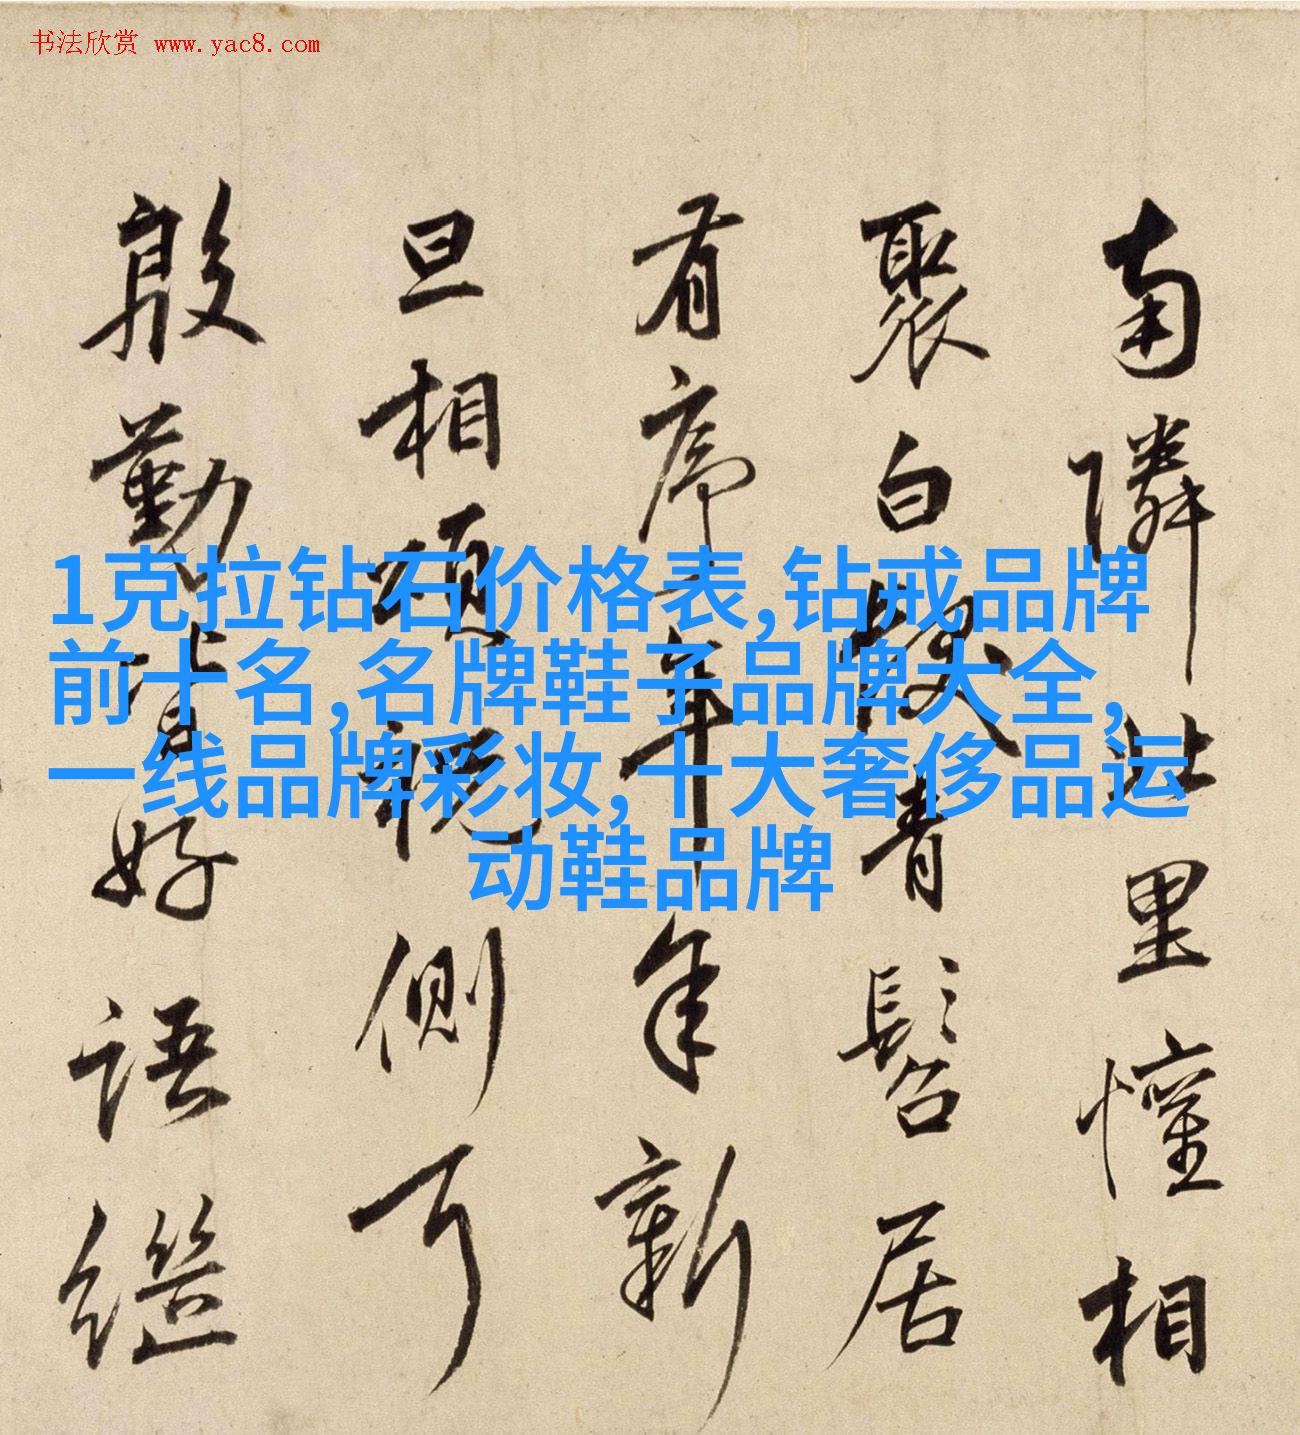 书法欣赏 www.yac8.com
南隣北里懽相
聚白髮青髫居
有序年年新
旦相頌祝側耳
殷勤皆好語繼
1克拉钻石价格表,钻戒品牌
前十名,名牌鞋子品牌大全,
一线品牌彩妆,十大奢侈品运
动鞋品牌